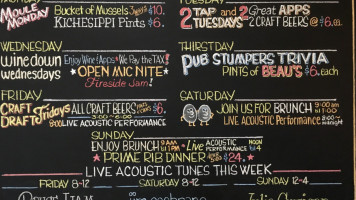 MONDAY
MOULE MONDAY
Bucket of Mussels $10.
KICHESIPPI Pints $6.
TUESDAY
2 TAP and 2 Great APPS
TUESDAYS 2 CRAFT BEERS @ $6 ea.
WEDNESDAY
wine down wednesdays
Enjoy Wine & Apps We Pay the TAX!
OPEN MIC NITE
Fireside Jam!
THIRSTDAY
PUB STUMPERS TRIVIA
PINTS of BEAU'S $6. each
FRIDAY
CRAFT DRAFT Fridays
ALL CRAFT BEERS $6.
3:00-6:00
8:00 LIVE ACOUSTIC PERFORMANCE
SATURDAY
JOIN US FOR BRUNCH 9:00 am
LIVE ACOUSTIC Performance 8:00 - midnight
SUNDAY
ENJOY BRUNCH 9 AM 1 PM Live ACOUSTIC MUSIC NOON TO 4
PRIME RIB DINNER $24.
LIVE ACOUSTIC TUNES THIS WEEK
FRIDAY 8-12 SATURDAY 8-12 SUNDAY 12-4